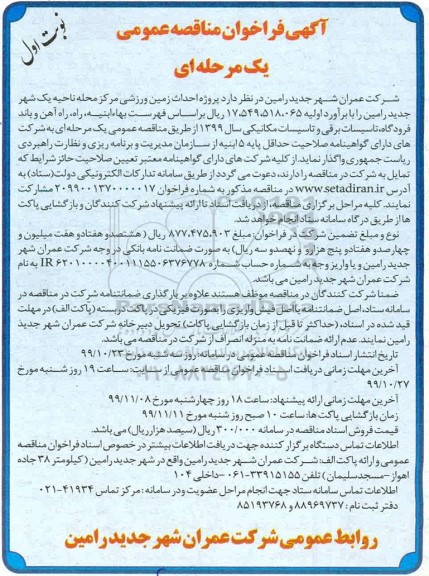 نوبت اول
آگهی فراخوان مناقصه عمومی
یک مرحله ای
شرکت عمران شهر جدید رامین در نظر دارد پروژه احداث زمین ورزشی مرکز محله ناحیه یک شهر
جدید رامین را با برآورد اولیه ۱۷،۵۴۹،۵۱۸،۰۶۵ ریال براساس فهرست بهاء ابنیه، راه، راه آهن و باند
فرودگاه، تاسیسات برقی و تاسیسات مکانیکی سال ۱۳۹۹ از طریق مناقصه عمومی یک مرحله ای به شرکت
های دارای گواهینامه صلاحیت حداقل پایه ۵ ابنیه از سازمان مدیریت و برنامه ریزی و نظارت راهبردی
ریاست جمهوری واگذار نماید. از کلیه شرکت های دارای گواهینامه معتبر تعیین صلاحیت حائز شرایط که
تمایل به شرکت در مناقصه را دارند، دعوت می گردد از طریق سامانه تدارکات الکترونیکی دولت (ستاد) به
آدرس www.setadiran.ir در مناقصه مذکور به شماره فراخوان ۲۰۹۹۰۰۱۳۷۰۰۰۰۰۱۷ مشارکت
نمایند. کلیه مراحل برگزاری مناقصه، از دریافت اسناد تا ارائه پیشنهاد شرکت کنندگان و بازگشایی پاکت
ها از طریق درگاه سامانه ستاد انجام خواهد شد.
نوع و مبلغ تضمین شرکت در فراخوان: مبلغ ۸۷۷،۴۷۵،۹۰۳ ریال (هشتصدو هفتادو هفت میلیون و
چهارصدو هفتادو پنج هزار و نهصدو سه ریال) به صورت ضمانت نامه بانکی در وجه شرکت عمران شهر
جدید رامین و یا واریز وجه به شماره حساب شماره IR ۶۲۰۱۰۰۰۰۴۰۰۱۱۱۵۵۰۶۳۷۶۷۷۸ به نام
شرکت عمران شهر جدید رامین می باشد.
ضمنا شرکت کنندگان در مناقصه موظف هستند علاوه بر بارگذاری ضمانتنامه شرکت در مناقصه در
سامانه ستاد، اصل ضمانتنامه یا اصل فیش واریزی را بصورت فیزیکی در پاکت دربسته (پاکت الف) در مهلت
قید شده در اسناد، (حداکثر تا قبل از زمان بازگشایی پاکات) تحویل دبیرخانه شرکت عمران شهر جدید
رامین نمایند. عدم ارائه ضمانت نامه به منزله انصراف از شرکت در مناقصه می باشد.
تاریخ انتشار اسناد فراخوان مناقصه عمومی در سامانه: روز سه شنبه مورخ ۹۹/۱۰/۲۳
آخرین مهلت زمانی دریافت اسناد فراخوان مناقصه عمومی از سایت: ساعت ۱۹ روز شنبه مورخ
۹۹/۱۰/۲۷
آخرین مهلت زمانی ارائه پیشنهاد: ساعت ۱۸ روز چهارشنبه مورخ ۹۹/۱۱/۰۸
زمان بازگشایی پاکت ها: ساعت ۱۰ صبح روز شنبه مورخ ۹۹/۱۱/۱۱
قیمت فروش اسناد مناقصه در سامانه ۳۰۰/۰۰۰ ریال (سیصد هزار ریال) می باشد.
اطلاعات تماس دستگاه برگزار کننده جهت دریافت اطلاعات بیشتر در خصوص اسناد فراخوان مناقصه
عمومی و ارائه پاکت الف: شرکت عمران شهر جدید رامین واقع در شهر جدید رامین (کیلومتر ۳۸ جاده
اهواز - مسجدسلیمان) تلفن ۳۳۹۱۵۱۵۵-۰۶۱ - داخلی ۱۰۴
اطلاعات تماس سامانه ستاد جهت انجام مراحل عضویت ودر سامانه: مرکز تماس ۴۱۹۳۴-۰۲۱
دفتر ثبت نام: ۸۸۹۶۹۷۳۷ و ۸۵۱۹۳۷۶۸
روابط عمومی شرکت عمران شهر جدید رامین